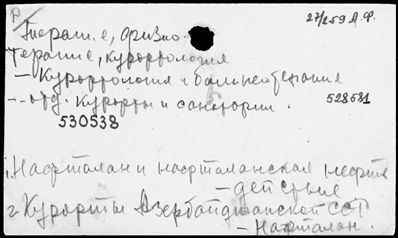 27/259 А.Ф.
Терапие, физио-
терапие, курортология
- Курортология и бальнеотерапие
- отд. курорты и санатории.
528681
530538
1. Нафталан и нафталанская нефть
- действие
2. Курорты Азербайджанской ССР
- Нафталан.